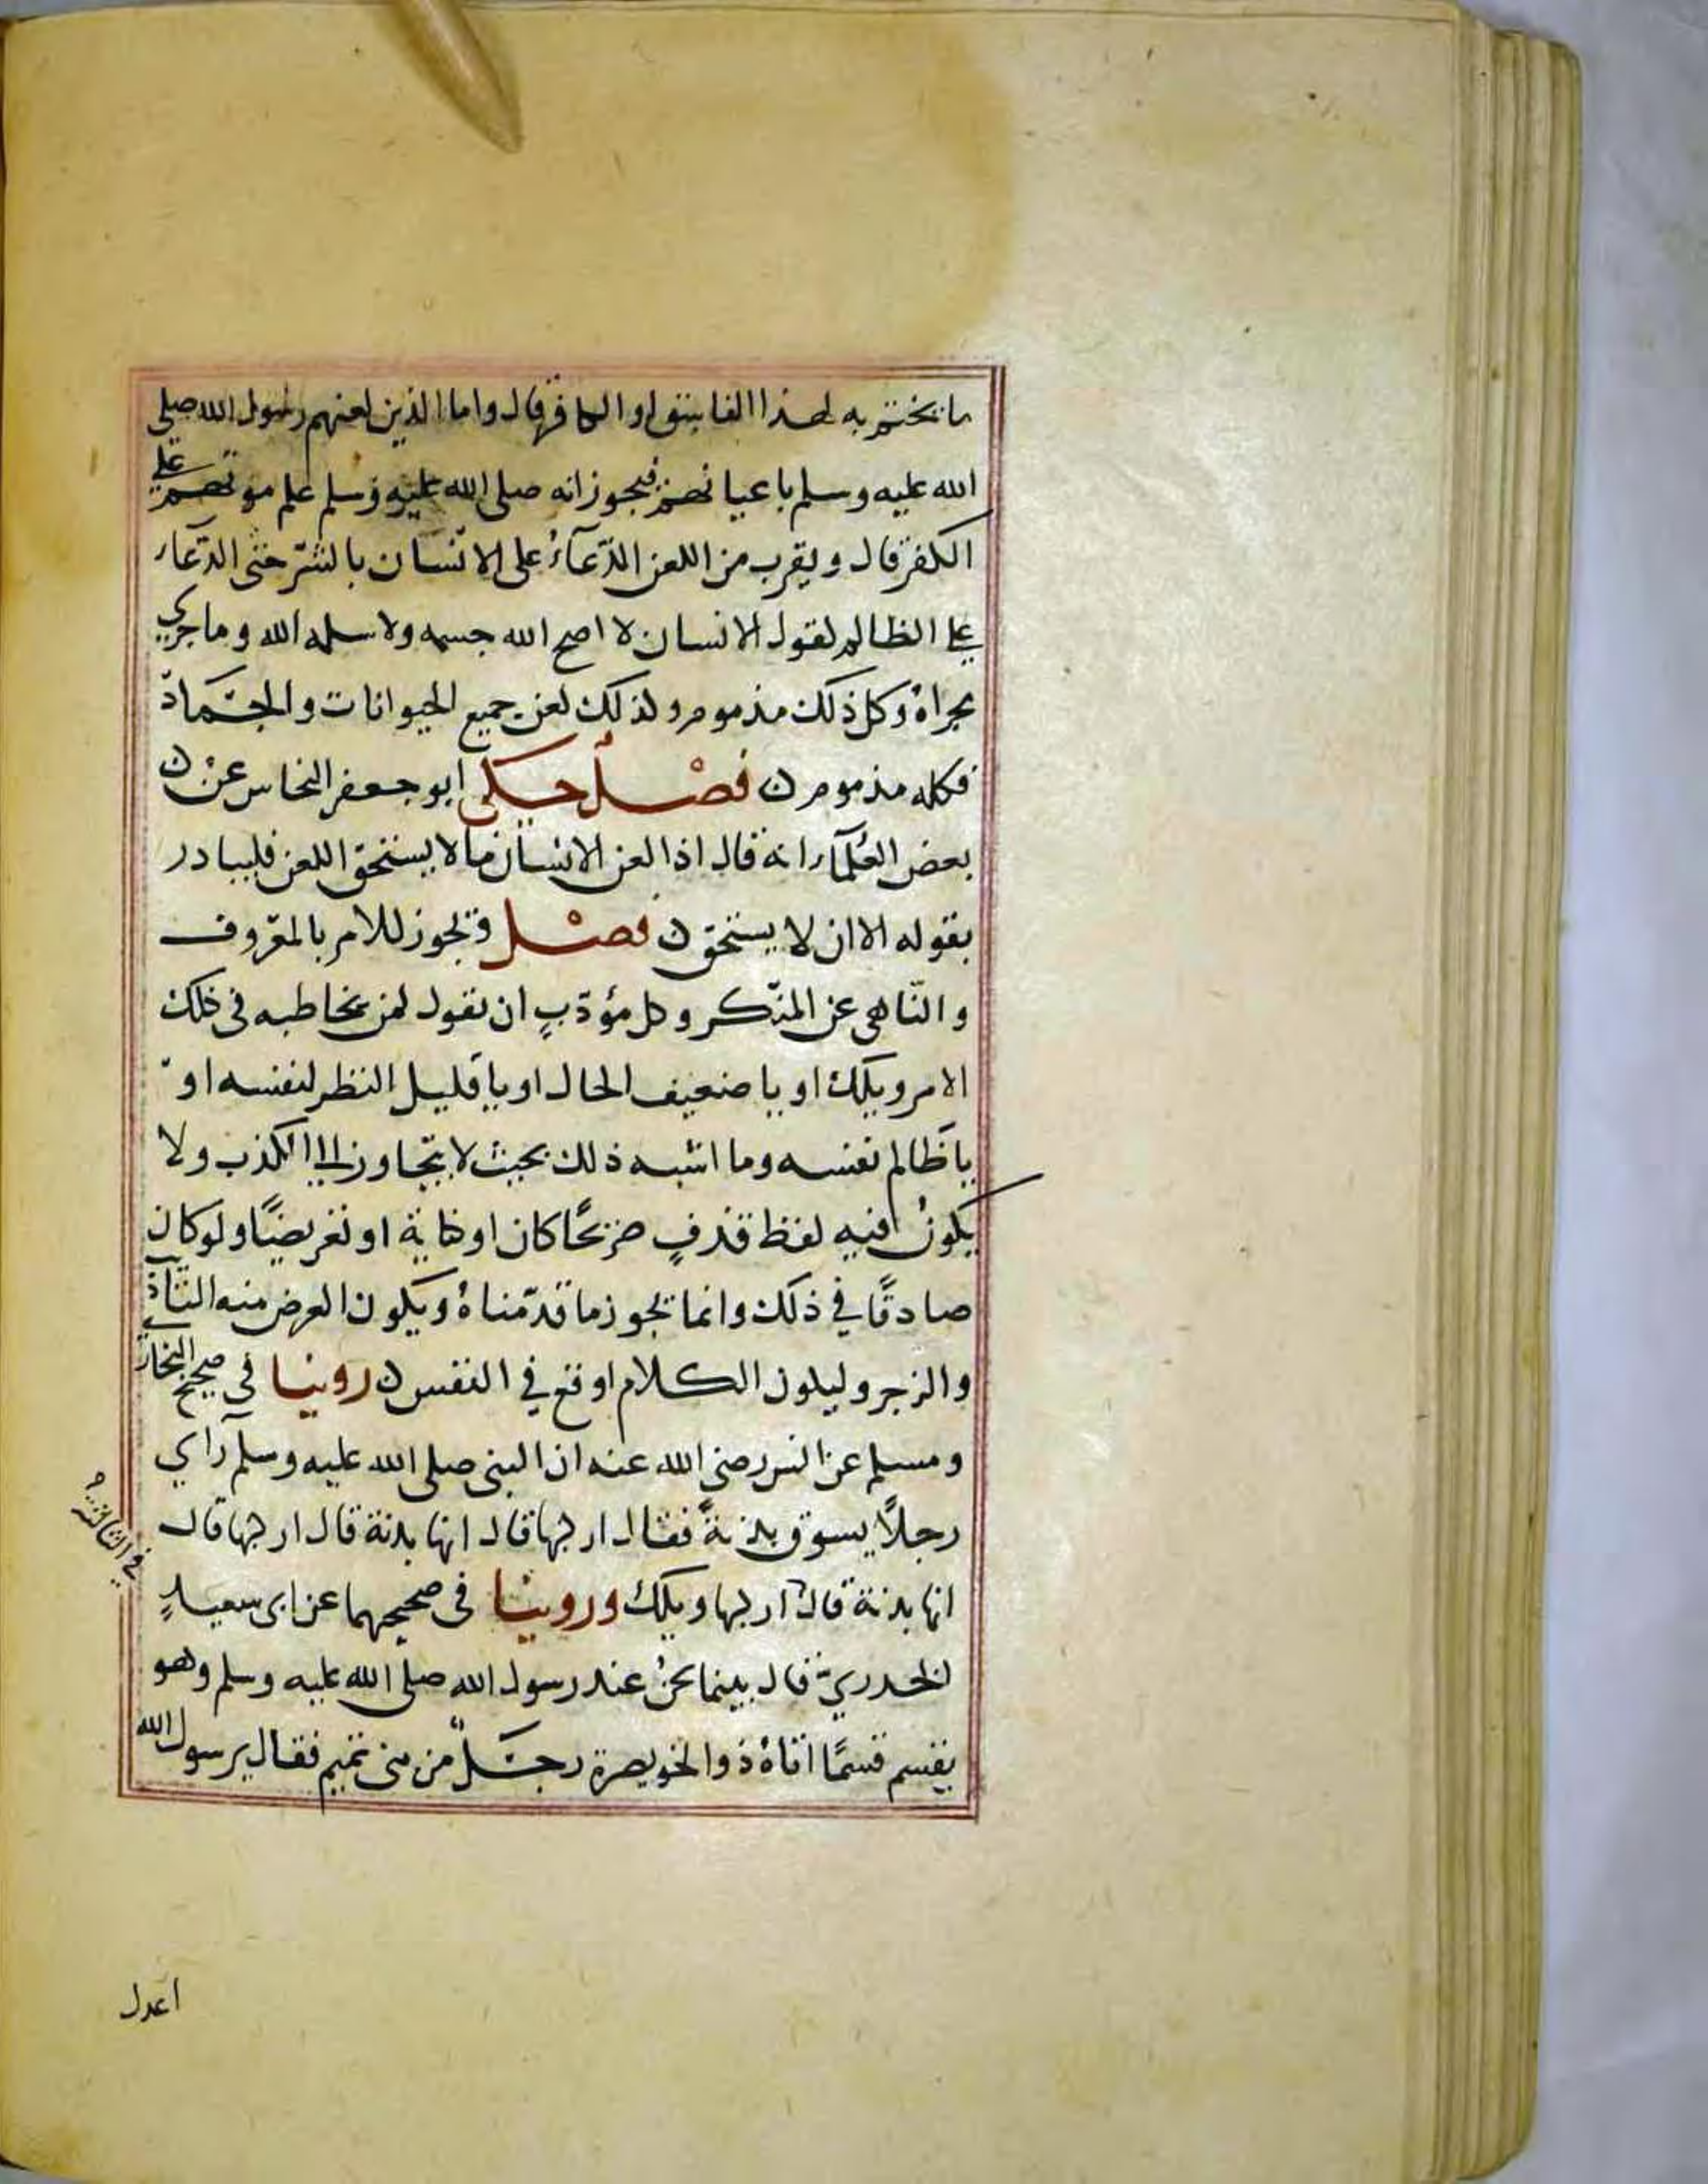 ما يختم به لهذا الفاسق او الكافر قال واما الذين لعنهم رسول الله صلى
الله عليه وسلم باعيانهم فيجوز انه صلى الله عليه وسلم علم موتهم على
الكفر قال ويقرب من اللعن الدّعآءُ على الانسان بالشر حتى الدّعآء
على الظالم لقول الانسان لا اصح الله جسمه ولا سلمه الله وما جري
مجراهُ وكل ذلك مذموم ولذلك لعن جميع الحيوانات والجماد
فكله مذموم ن فصل حكى ابو جعفر النحاس عن ن
بعض العُلمآء انه قال اذا لعن الانسان ما لا يستحق اللعن فليبادر
بقوله الا ان لا يستحق ن فصل ويجوز للامر بالمعروف
والنّاهى عن المنكر وكل مؤدّبٍ ان يقول لمن يخاطبه فى ذلك
الامر ويلك او يا ضعيف الحال او يا قليل النظر لنفسه او
يا ظالم نفسه وما اشبه ذلك بحيث لا يتجاوز الى الكذب ولا
يكونُ فيه لفظ قذفٍ صريحًا كان او كناية او تعريضًا ولو كان
صادقًا في ذلك وانما يجوز ما قدّمناهُ ويكون الغرض منه التاذي
والزجر وليكون الكلام اوقع في النفس ن روينا في صحيح البخاري
ومسلم عن انس رضى الله عنه ان النبى صلى الله عليه وسلم رآي
رجلاً يسوق بدنةً فقال اركبها قال انها بدنة قال اركبها قال
انها بدنة قال اركبها ويلك وروينا فى صحيحيهما عن ابى سعيدٍ
الخدريّ قال بينما نحنُ عند رسول الله صلى الله عليه وسلم وهو
يقسم قسمًا اتاهُ ذوالخويصرة رجلٌ من بنى تميم فقال يرسول الله
في الثالثة
اعدل